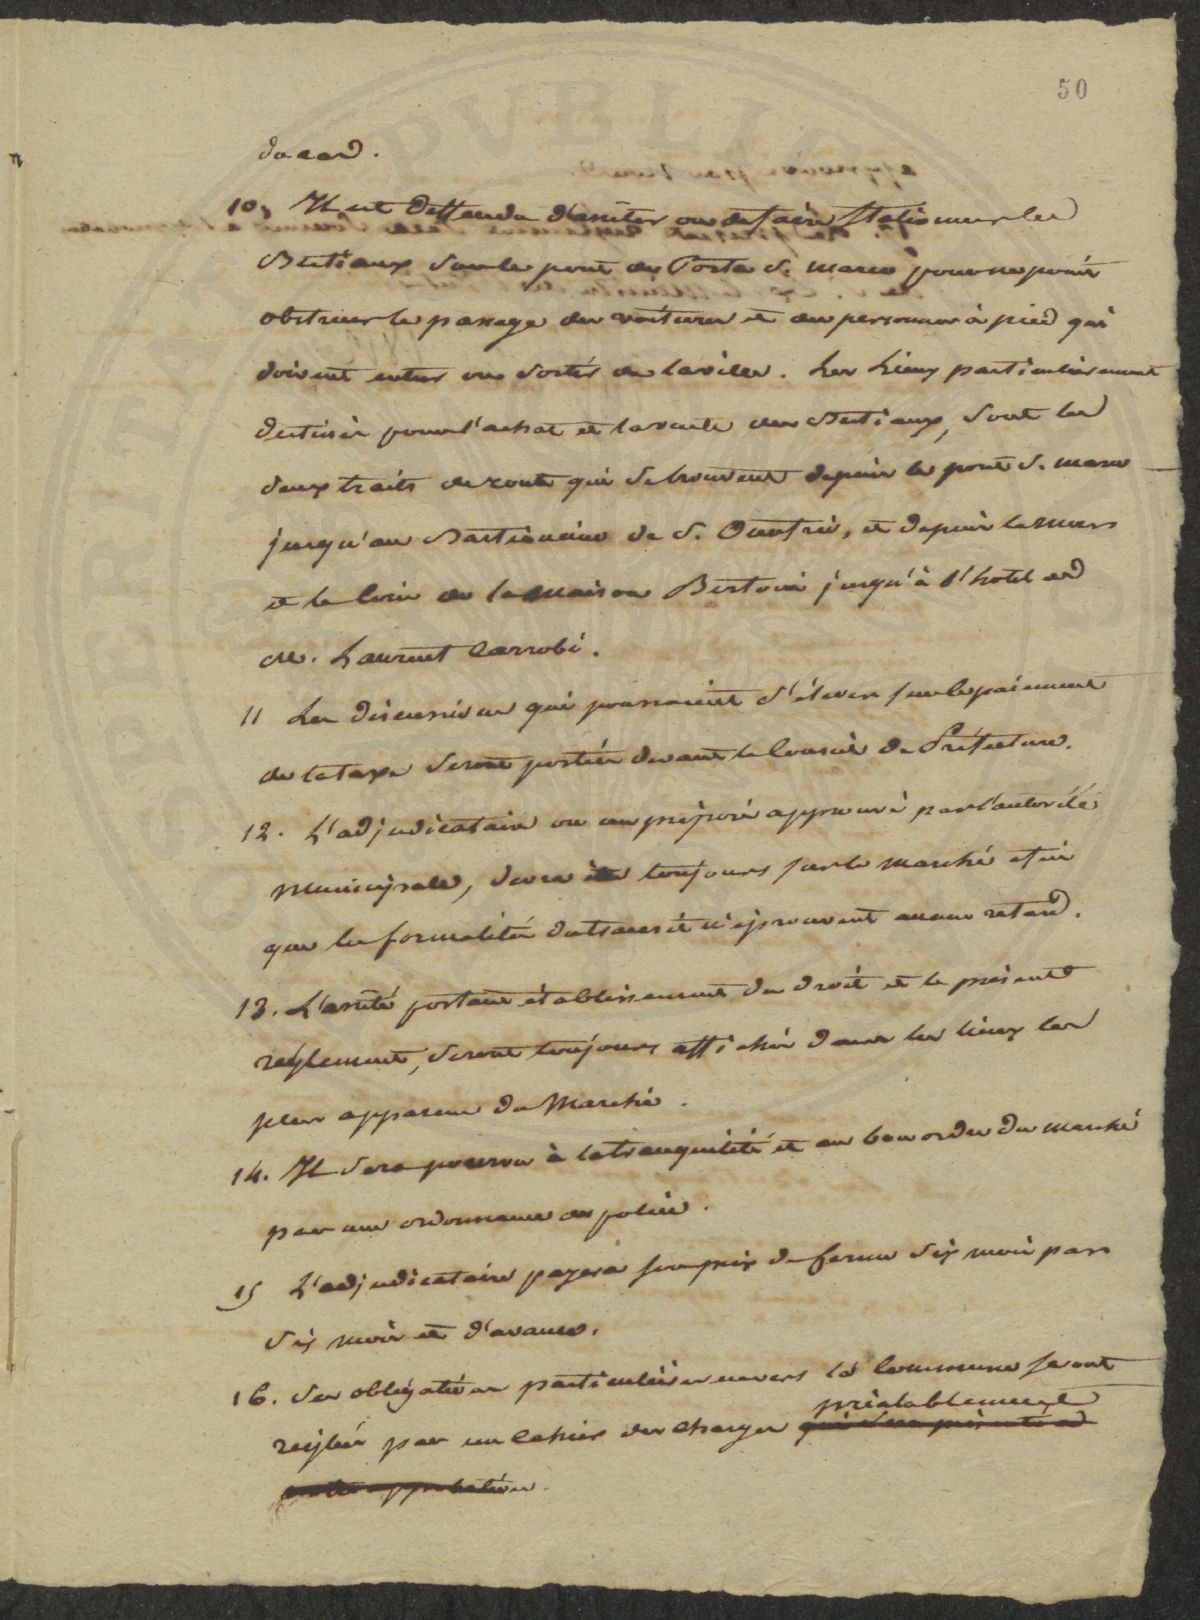 50
du cas.
10, Il est deffendu d'arrêter ou de faire stationner les
Bestiaux sur le pont de Porte S. Marco pour ne point
obstruer le passage des voitures et des personnes à pied qui
doivent entrer ou sortir de la ville. Les Lieux particulièrement
destinés pour l'achat et la vente des Bestiaux, sont les
deux traits de route qui se trouvent depuis le pont S. Marco
jusqu'au Bastion de S. et depuis le murs
et le coin de la Maison Bertoni jusqu'à l'hotel de
M. Laurent Carrobi.
11 Les discussions qui pourraient s'élever sur le paiement
de la taxe seront portées devant le Conseil de Préfecture.
12. L'adjudicataire ou un préposé approuvé par l'autorité
Municipale, devra être toujours sur le marché afin
que les formalités n'éprouvent aucun retard.
13. L'arrêté portant établissement du droit et le présent
reglement, seront toujours affichés dans les lieux les
plus apparens du Marché.
14. Il sera pourvu à la tranquilité et au bon ordre du marché
par une ordonnance de police.
15 L'adjudicataire payera son prix de ferme six mois par
six mois et d'avance.
16. Ses obligations particulières envers la Commune seront
préalablement
reglées par un Cahier des charges qui sera présenté à
notre approbation.